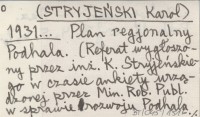 (STRYJEŃSKI Karol)
1931... Plan regjonalny
Podhala. (Referat wygłoszo-
ny przez inż. K. Stryjeńskie-
go w czasie ankiety urzą-
dzonej przez Min. Rob. Publ.
w sprawie rozwoju Podhala